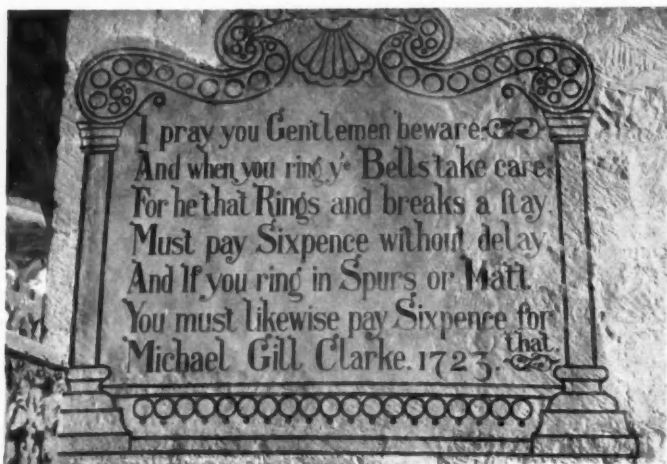 I pray you Gentlemen beware
And when you ring yᵉ Bells take care;
For he that Rings and breaks a ſtay.
Must pay Sixpence without delay.
And If you ring in Spurs or Hatt
You must likewise pay Sixpence for
that.
Michael Gill Clarke. 1723.